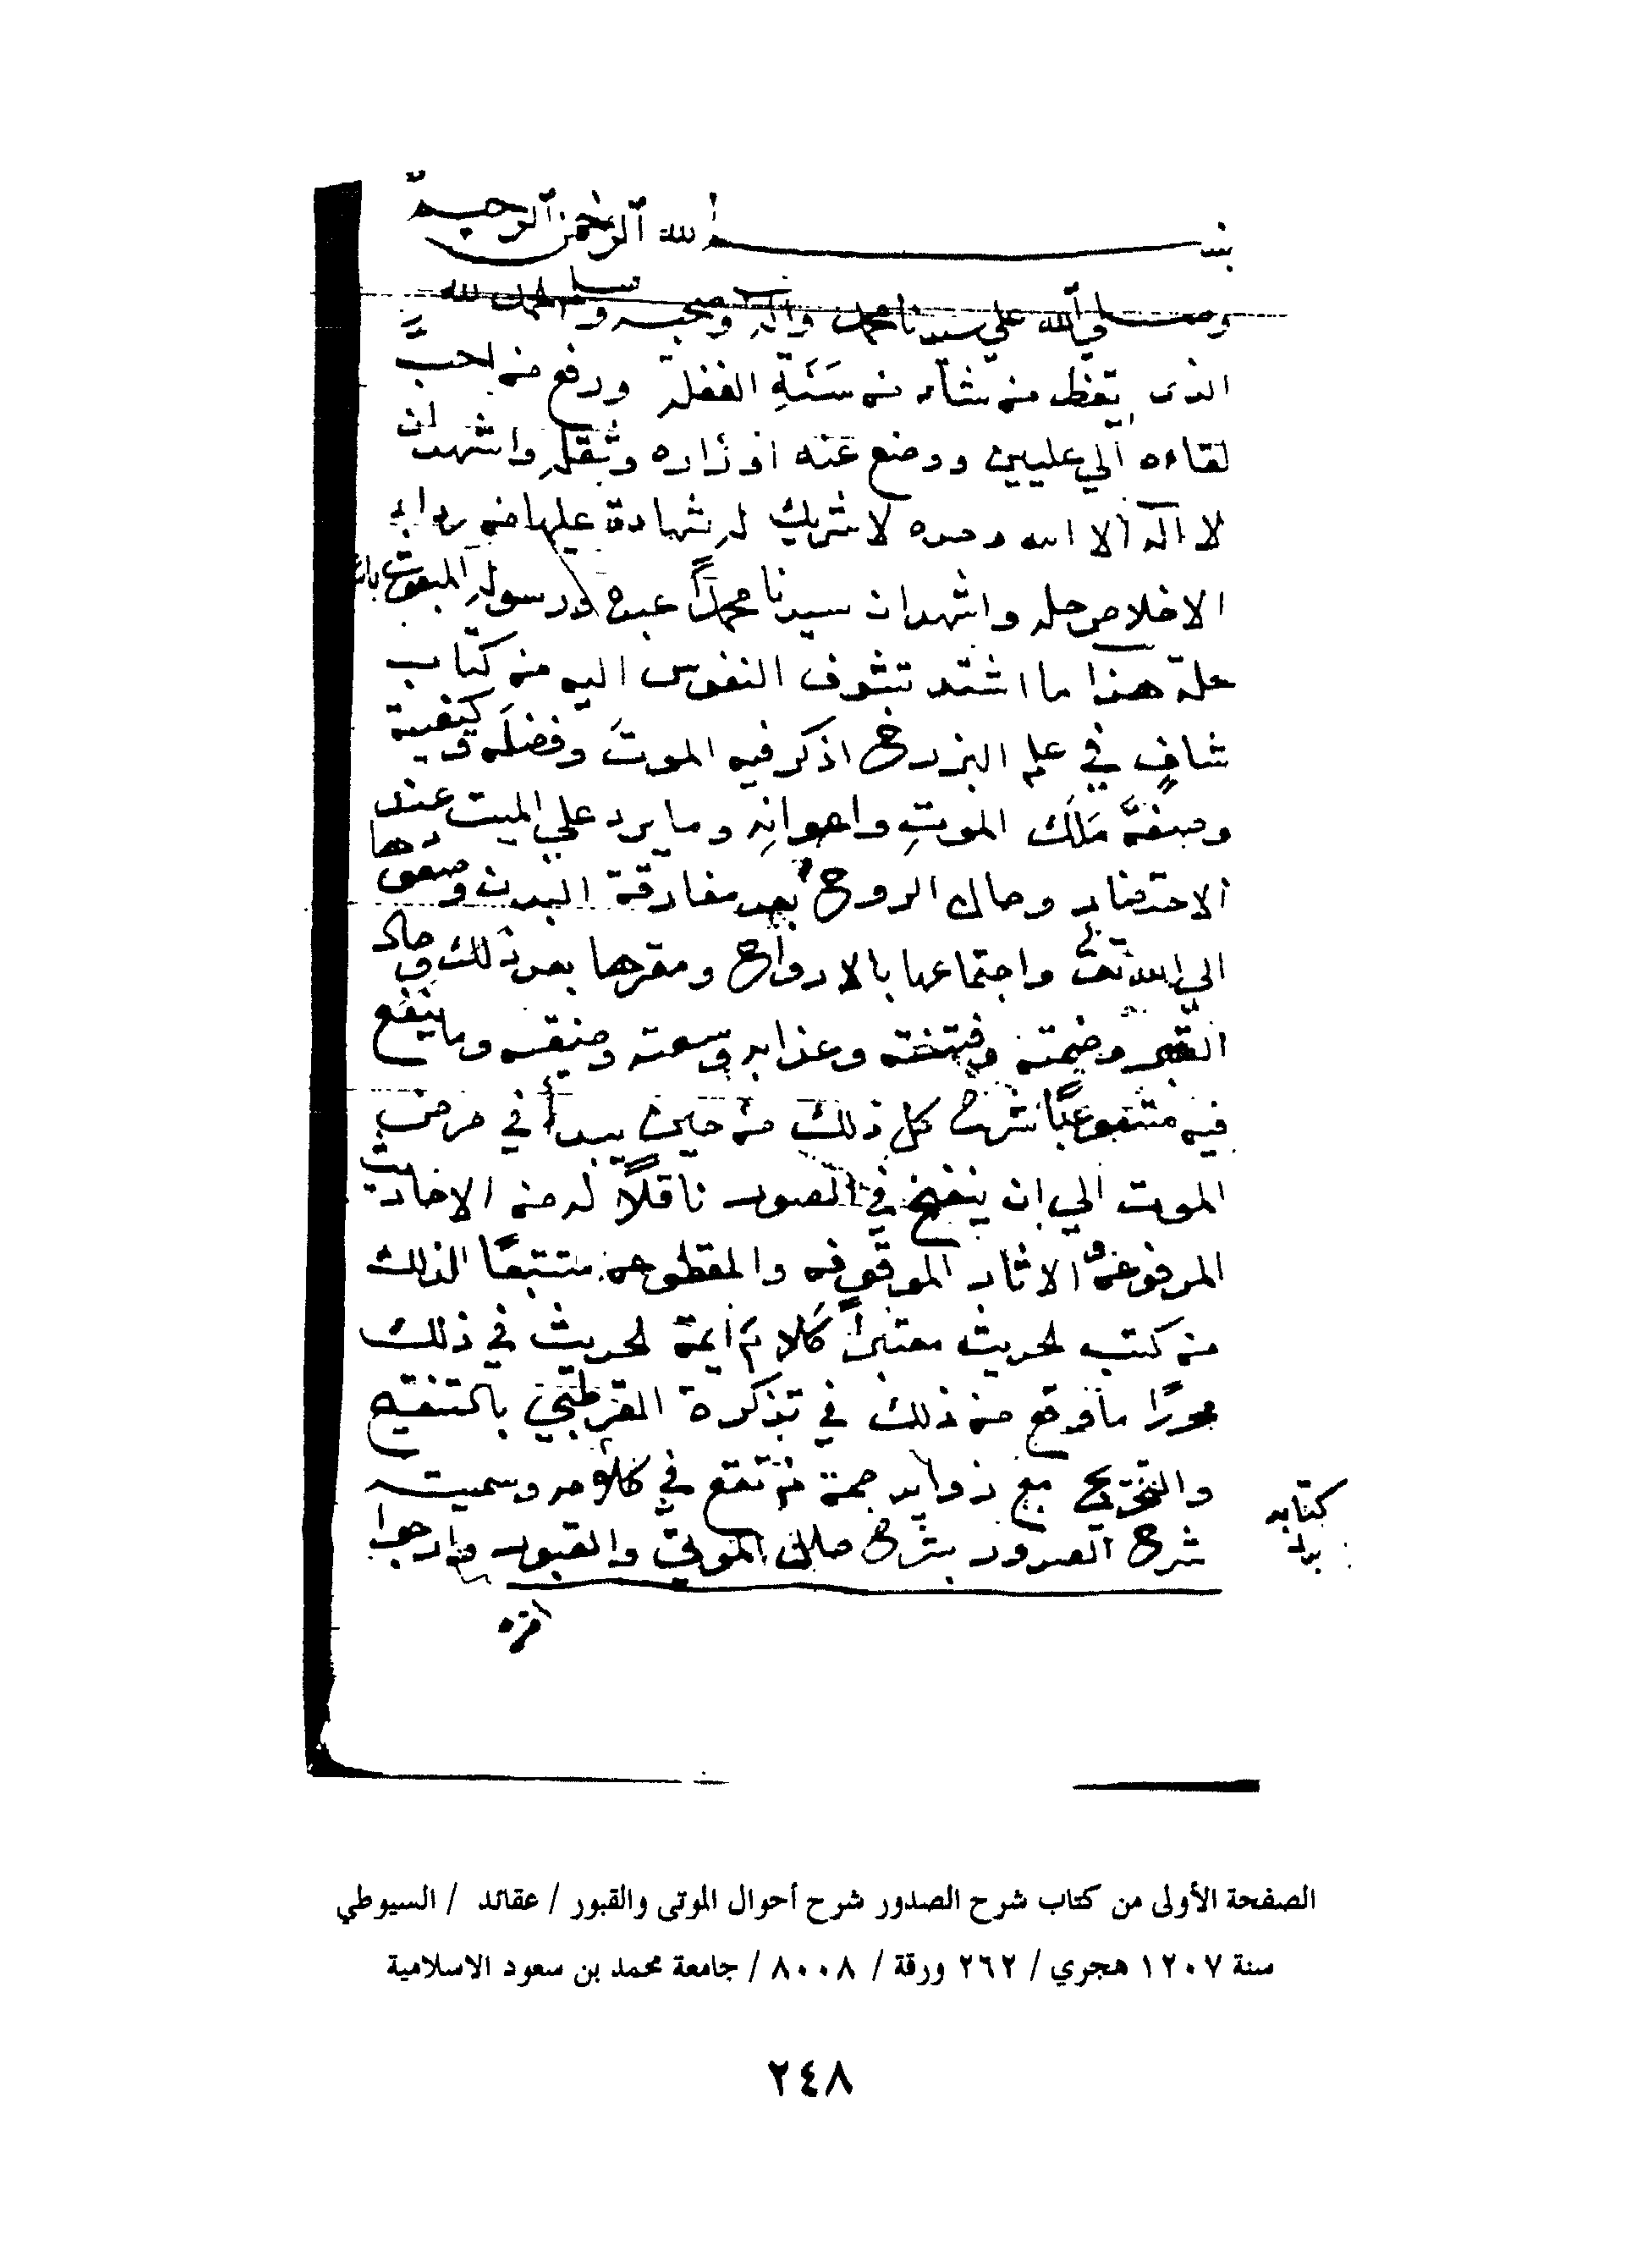 بسم الله الرحمن الرحيم
وصلي الله علي سيدنا محمد وآله وصحبه وسلم الحمد لله
الذى يقظ من شاء من سَنَةِ الغفلة ورفع من احبَّ
لقاءه الي عليين ووضع عنه اوزاره وثقله واشهد ان
لا اله الا الله وحده لا شريك له شهادة عليها من رداء
الاخلاص حله واشهد ان سيدنا محمدًا عبده ورسوله المبعوث
حلة هذا ما اشتد تشوف النفوس اليه من كتاب
شافٍ في علم البرزخ اذكر فيه الموتَ وفضلَه وكيفية
وصفةَ مَلَك الموتِ واعوانِه وما يرد علي الميت عند
الاحتضار وحال الروح بعد مفارقة البدن وصعودها
الي الله تعالى واجتماعها بالارواح ومقرها بعد ذلك وحال
القبر وضمته وفتنته وعذابه وسعته وضيقه وما ينفع
فيه كل ذلك من حين يبدأ في مرض
الموت الي ان ينفخ في الصور ناقلًا له من الاحاديث
المرفوعة والاثار الموقوفه والمقطوعه متتبعًا لذلك
من كتب الحديث معتبرًا كلامَ ايمة الحديث في ذلك
محررًا ما وقع من ذلك في تذكرة القرطبي بالتنقيح
والتخريج مع زوايد جمة لم تقع في كلامه وسميته
كتابه
شرح الصدور بشرح حال الموتي والقبور وارجوا
الصفحة الأولى من كتاب شرح الصدور شرح أحوال الموتى والقبور / عقائد / السيوطي
سنة ١٢٠٧ هجري / ٢٦٢ ورقة / ٨٠٠٨ / جامعة محمد بن سعود الاسلامية
٢٤٨